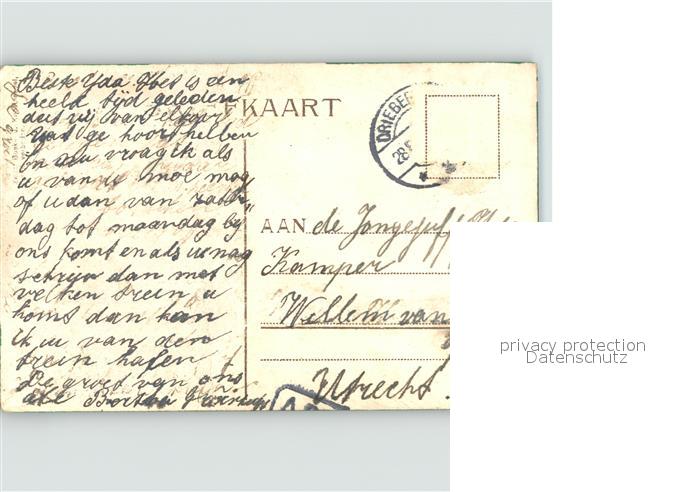 Beste Yda. Het is een
heele tijd geleden
dat wij van elkaar
wat ge hoort hebben
En nu vraag ik als
u van u moe mag
of u dan van Zater
dag tot maandag bij
ons komt en als u mag
schrijw dan met
welken trein u
komt dan kan
ik u van den
trein halen
De groet van ons
alle
EKAART
DRIEBE
28
AAN de Jongejuff
Kamper
Willem van
Utrecht.
privacy protection
Datenschutz